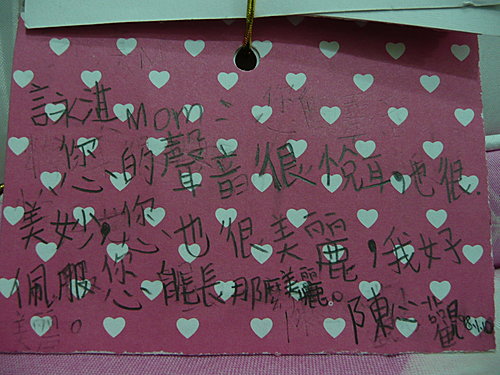 詠湛Mom:
您的聲音很悅耳,也很
美妙,您也很美麗,我好
佩服您能長那麼美麗。
陳 觀 98.1.10